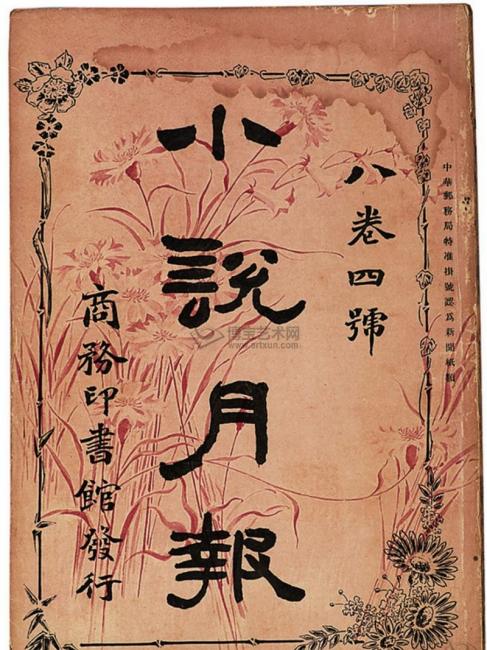 中華郵務局特准掛號認爲新聞紙類
八卷四號
小說月報
商務印書館發行
博宝艺术网
www.artxun.com